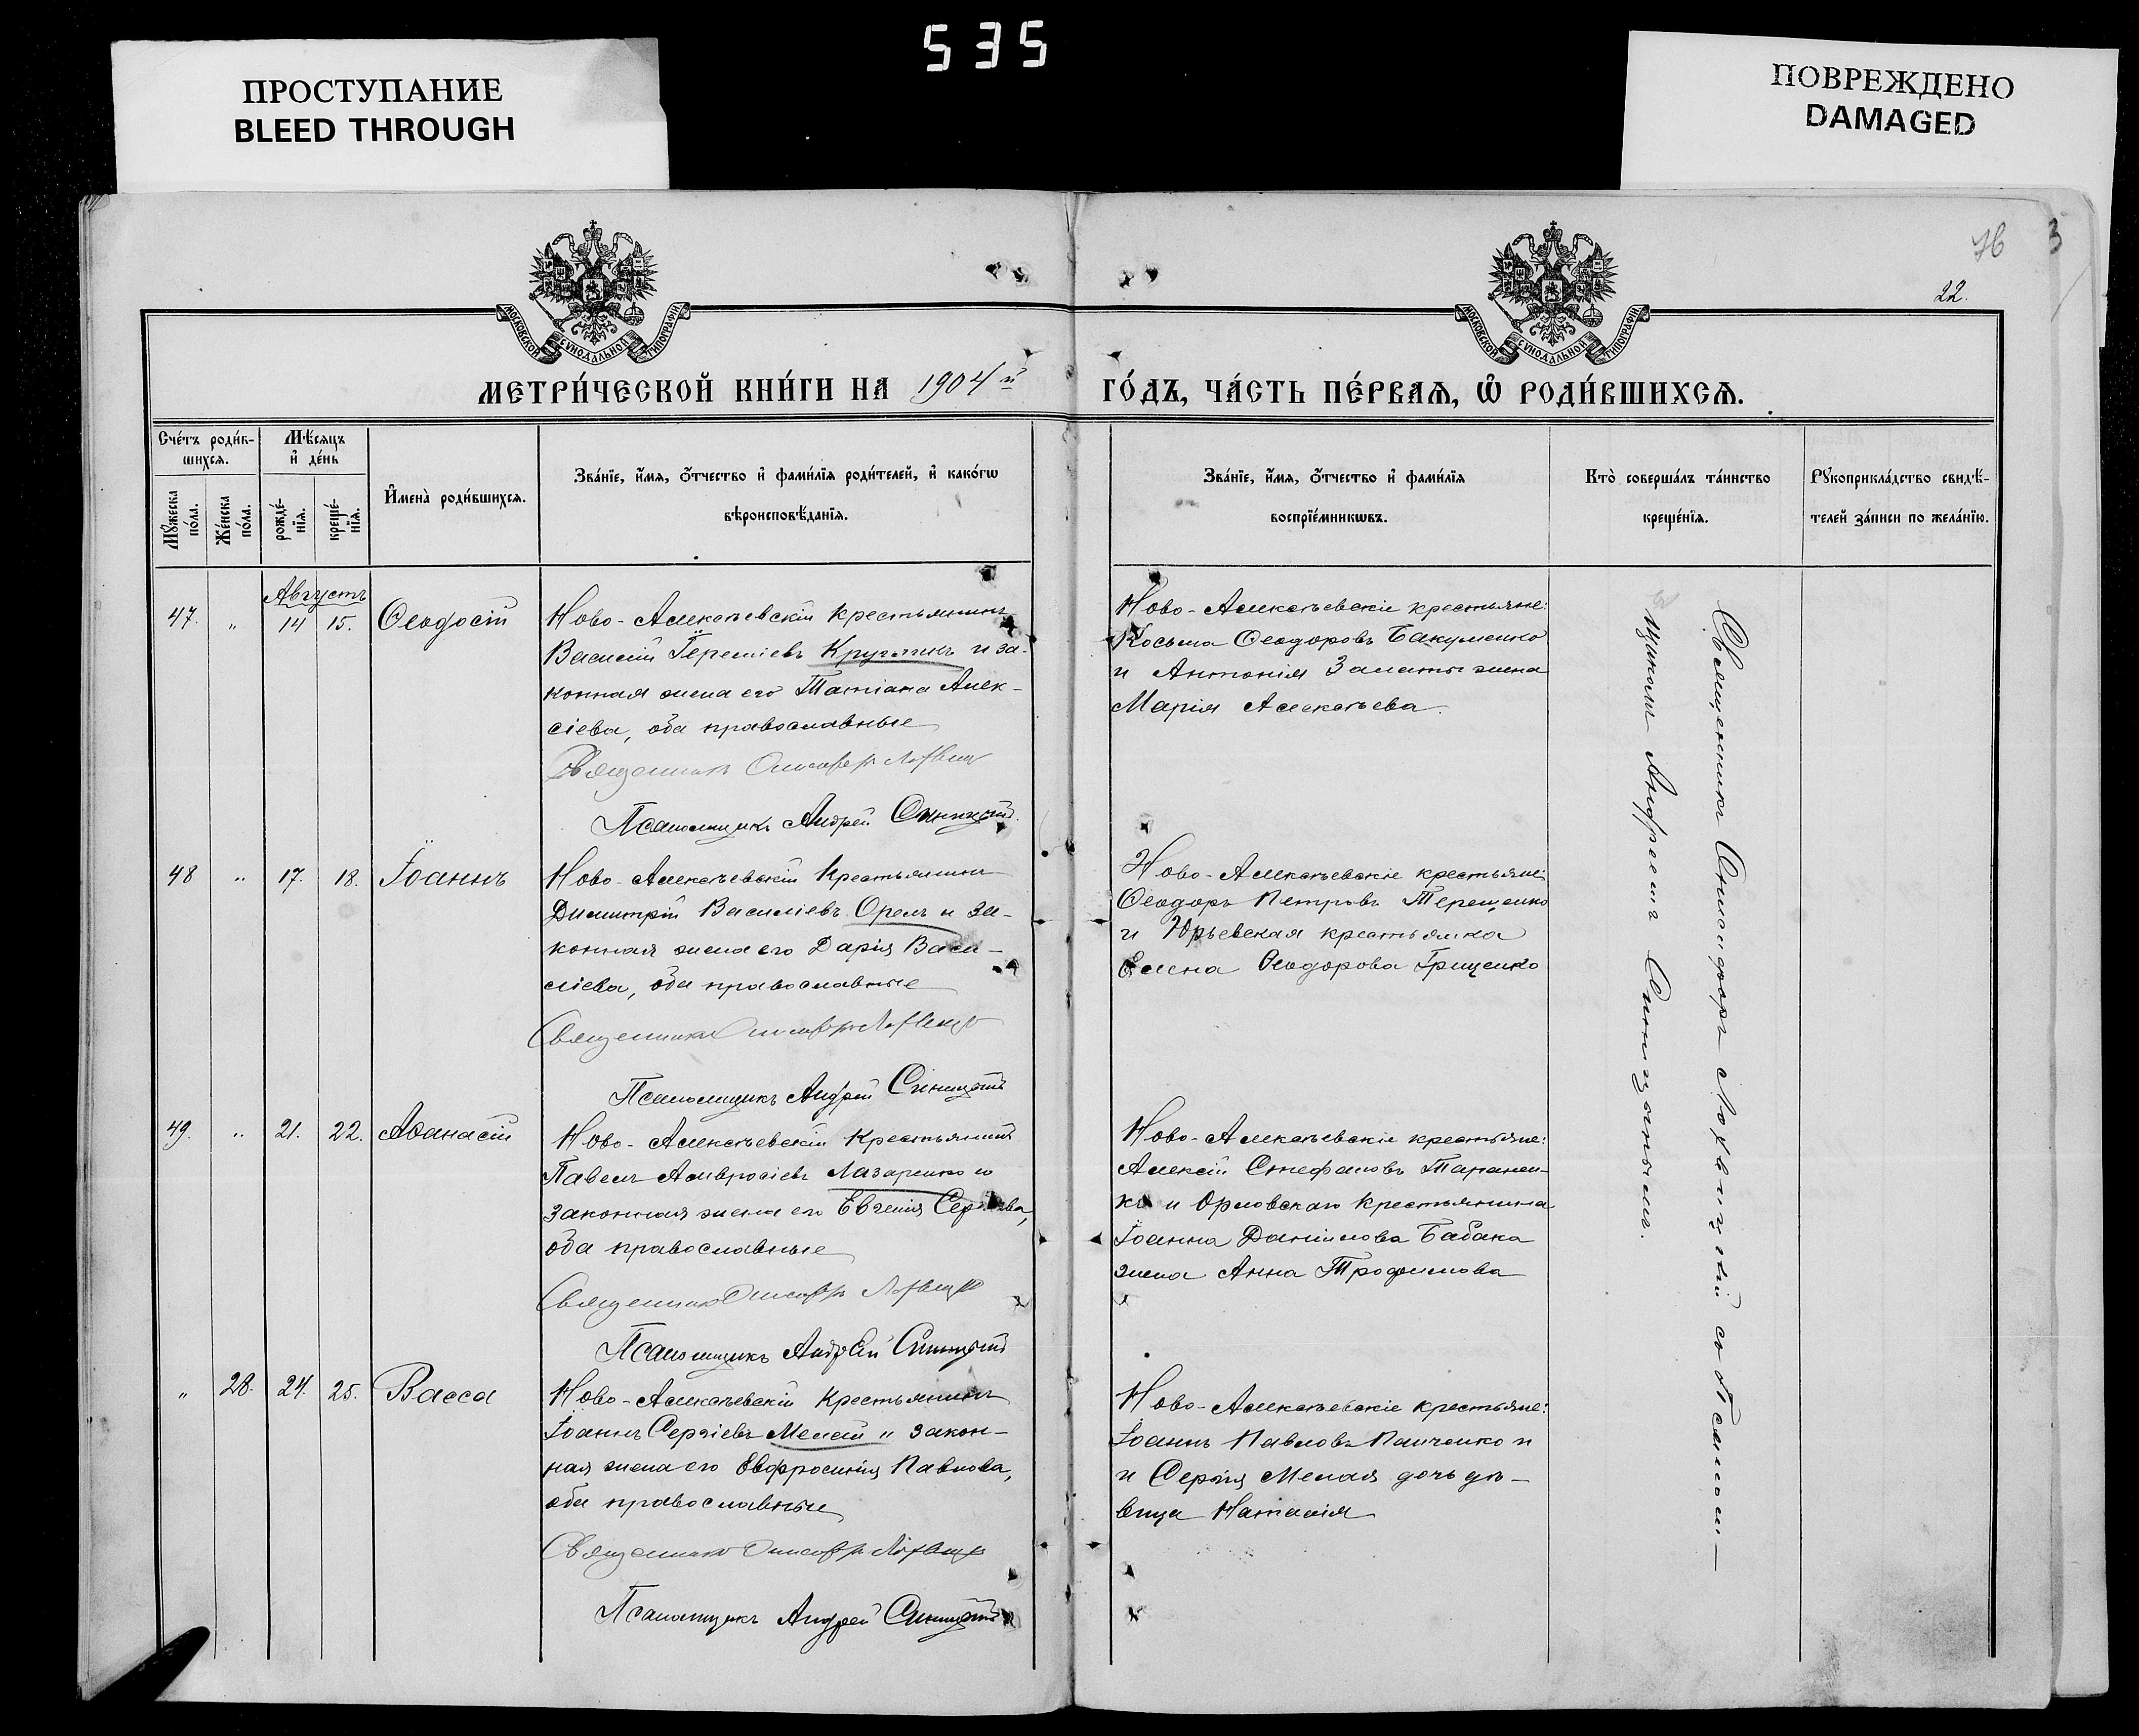 535
ПРОСТУПАНИЕ
BLEED THROUGH
ПОВРЕЖДЕНО
DAMAGED
76
3
22.
МОСКОВСКОЙ СѴНОДАЛЬНОЙ ТИПОГРАФІИ
МОСКОВСКОЙ СѴНОДАЛЬНОЙ ТИПОГРАФІИ
МЕТРИ́ЧЕСКОЙ КНИ́ГИ НА 1904 й ГО́ДЪ, ЧА́СТЬ ПЕ́РВАѦ, Ѽ РОДИ́ВШИХСѦ.
Сче́тъ роди́в-
шихсѧ.
Мꙋ́жеска по́ла.
Же́нска по́ла.
Мѣ́сѧцъ
и҆ де́нь
рожде́-
нїѧ.
креще́-
нїѧ.
И҆мена̀ роди́вшихсѧ.
Зва́нїе, и҆́мѧ, ѻ҆́тчество и҆ фами́лїѧ роди́телей, и҆ како́гѡ
вѣроисповѣ́данїѧ.
Зва́нїе, и҆́мѧ, ѻ҆́тчество и҆ фами́лїѧ
воспрїе́мникѡвъ.
Кто̀ соверша́лъ та́инство
креще́нїѧ.
Рꙋкоприкла́дство свидѣ́-
телей за́писи по жела́нїю.
Августъ
47. " 14 15. Ѳеодосій
Ново-Алексѣевскій крестьянинъ
Василій Іереміевъ Кругликъ и за-
конная жена его Татіана Алек-
сіева, оба православные
Священникъ
Псаломщикъ Андрей Синицкій.
Ново-Алексѣевскіе крестьяне:
Косьма Ѳеодоровъ Бакуменко
и Антонія Залаты жена
Марія Алексѣева.
48 " 17. 18. Іоаннъ
Ново-Алексѣевскій крестьянинъ
Димитрій Василіевъ Орелъ и за-
конная жена его Дарія Васи-
ліева, оба православные
Священникъ
Псаломщикъ Андрей Синицкій
Ново-Алексѣевскіе крестьяне:
Ѳеодоръ Петровъ Терещенко
и Юрьевская крестьянка
Елена Ѳеодорова Грищенко
49. " 21. 22. Аѳанасій
Ново-Алексѣевскій крестьянинъ
Павелъ Амвросіевъ Лазаренко и
законная жена его Евгенія Сергіева,
оба православные
Священникъ
Псаломщикъ Андрей Синицкій
Ново-Алексѣевскіе крестьяне:
Алексій Стефановъ Таранен-
ко и Орловскаго крестьянина
Іоанна Даніилова Бабака
жена Анна Трофимова
" 28. 24. 25. Васса
Ново-Алексѣевскій крестьянинъ
Іоаннъ Сергіевъ Мелай и закон-
ная жена его Евфросинія Павлова,
оба православные
Священникъ
Псаломщикъ Андрей Синицкій
Ново-Алексѣевскіе крестьяне:
Іоаннъ Павловъ Панченко и
и Сергія Мелая дочь дѣ-
вица Наталія
Священникъ съ Псалом-
щикомъ Андреемъ Синицкимъ.